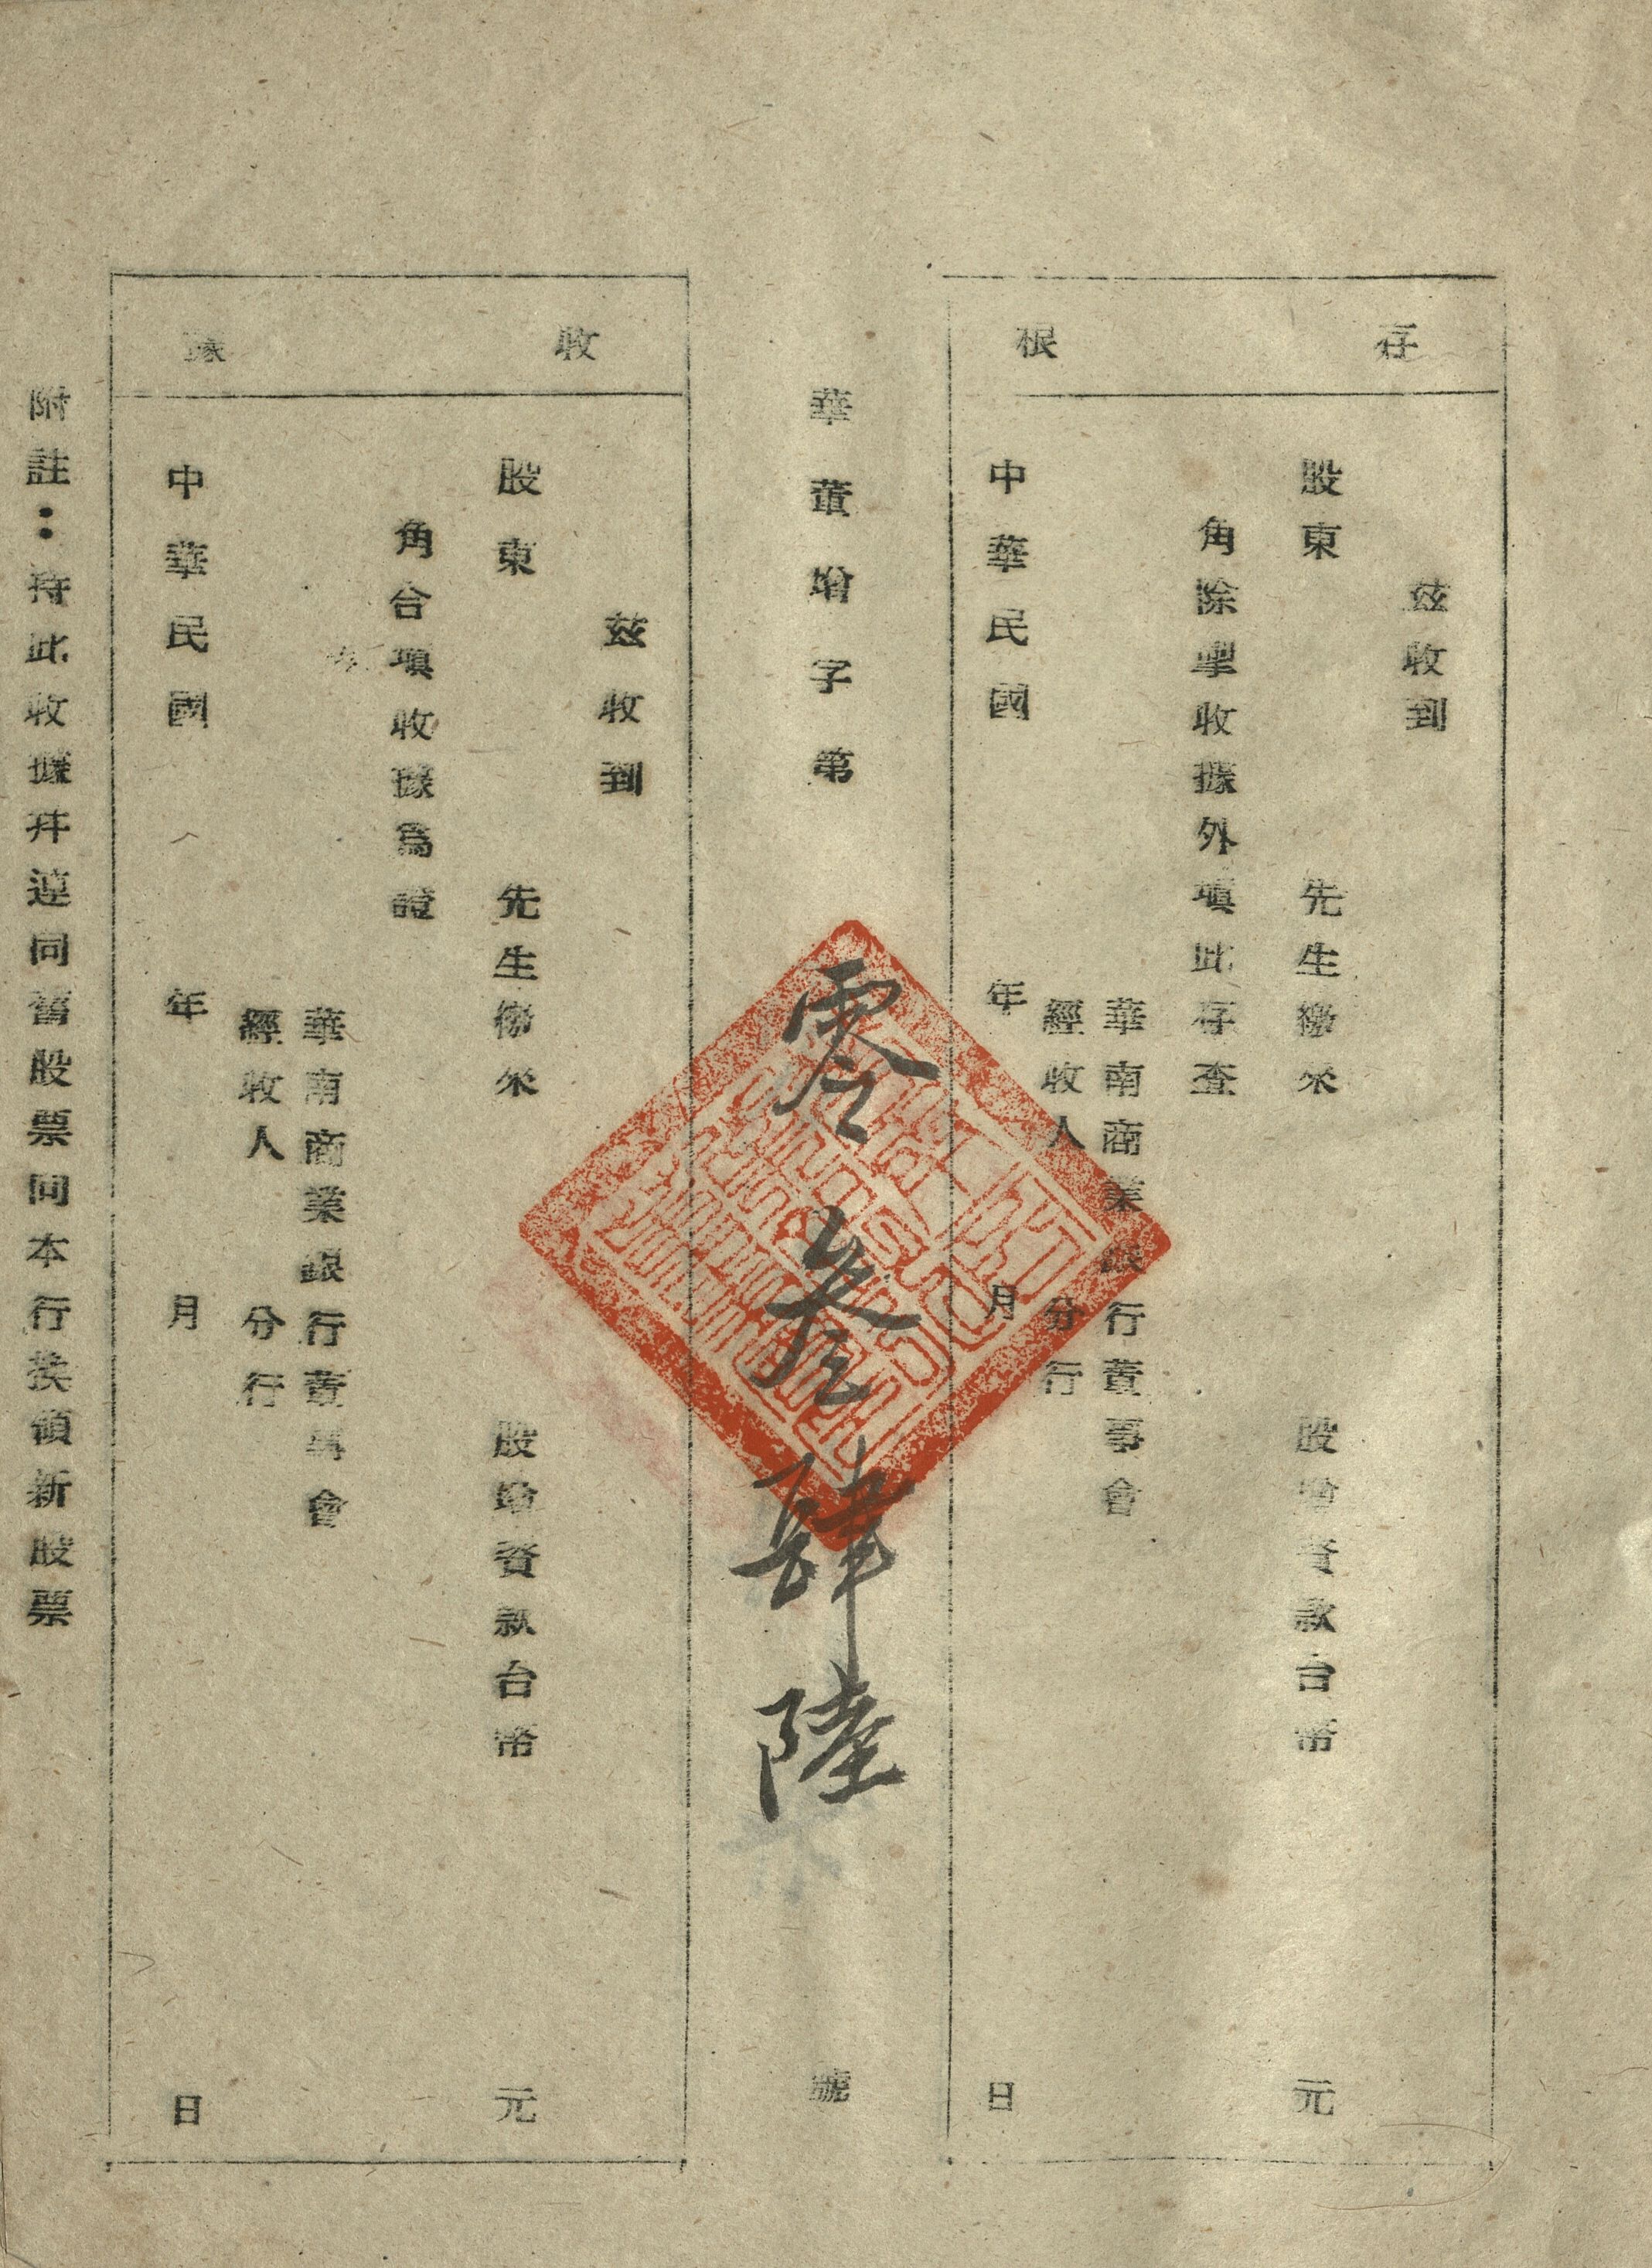 存根
茲收到
股東 先生繳來 股增資款台幣 元
角除掣收據外填此存查
華南商業銀行董事會
經收人 分行
中華民國 年 月 日
華董增字第 零叁肆陸 號
收據
茲收到
股東 先生繳來 股增資款台幣 元
角合填收據為證
華南商業銀行董事會
經收人 分行
中華民國 年 月 日
附註：持此收據并連同舊股票向本行換領新股票